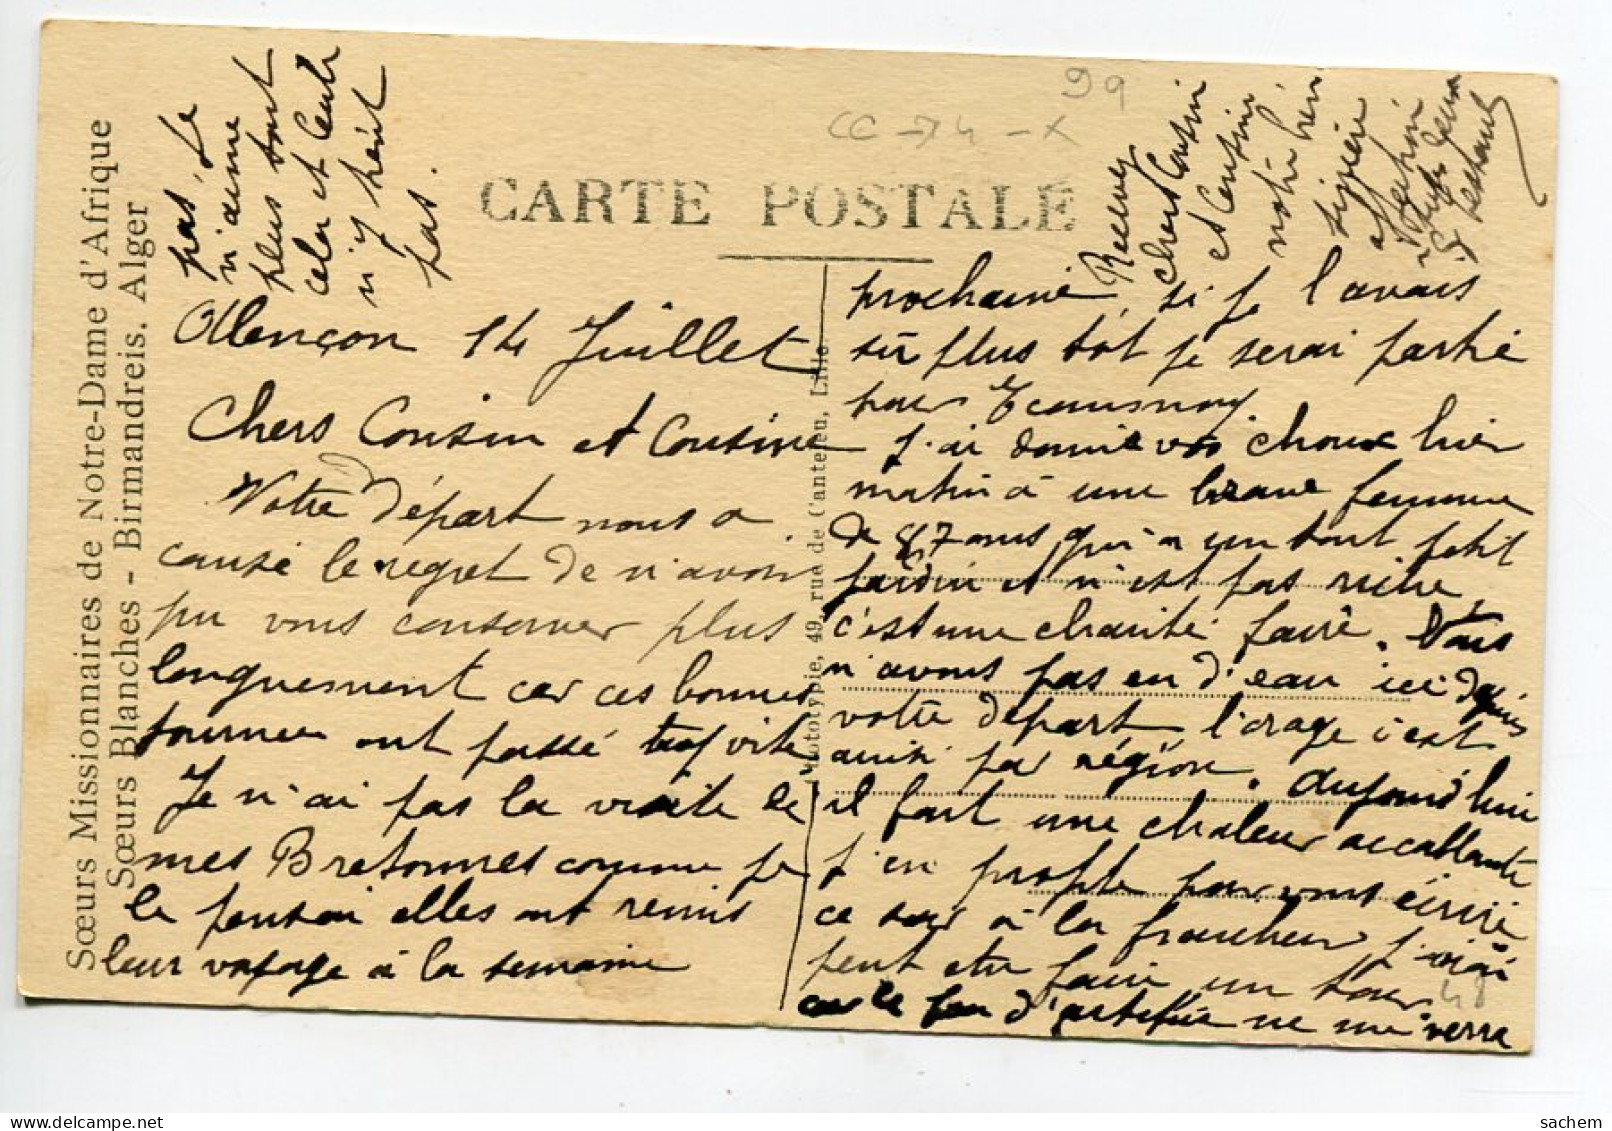 CARTE POSTALE
Sœurs Missionnaires de Notre-Dame d'Afrique
Sœurs Blanches - Birmandreis. Alger
Phototypie, 49, rue de Canteleu, Lille
99
CC-74-X
Alençon 14 Juillet
Chers Cousin et Cousine
Votre départ nous a
causé le regret de n'avoir
pu vous conserver plus
longuement car ces bonnes
journée ont passé trop vite
Je n'ai pas la visite de
mes Bretonnes comme je
le pensai elles ont remis
leur voyage à la semaine
prochaine, si je l'avais
sû plus tôt je serai partie
pour
J'ai donné vos choux hier
matin à une brave femme
de 87 ans qui a un tout petit
jardin et n'est pas riche
c'est une charité faire. Nous
n'avons pas eu d'eau ici depuis
votre départ l'orage c'est
ainsi par région. Aujourd'hui
il fait une chaleur accablante
j'en profite pour vous écrire
ce soir à la fraicheur j'irai
peut etre faire un tour
car le feu d'artifice ne me verra
pas, Je
n'aime
plus tout
cela et seule
n'y tient
pas.
Recevez
chers Cousin
et Cousine
notre bien
sincère
affection
48
sachem